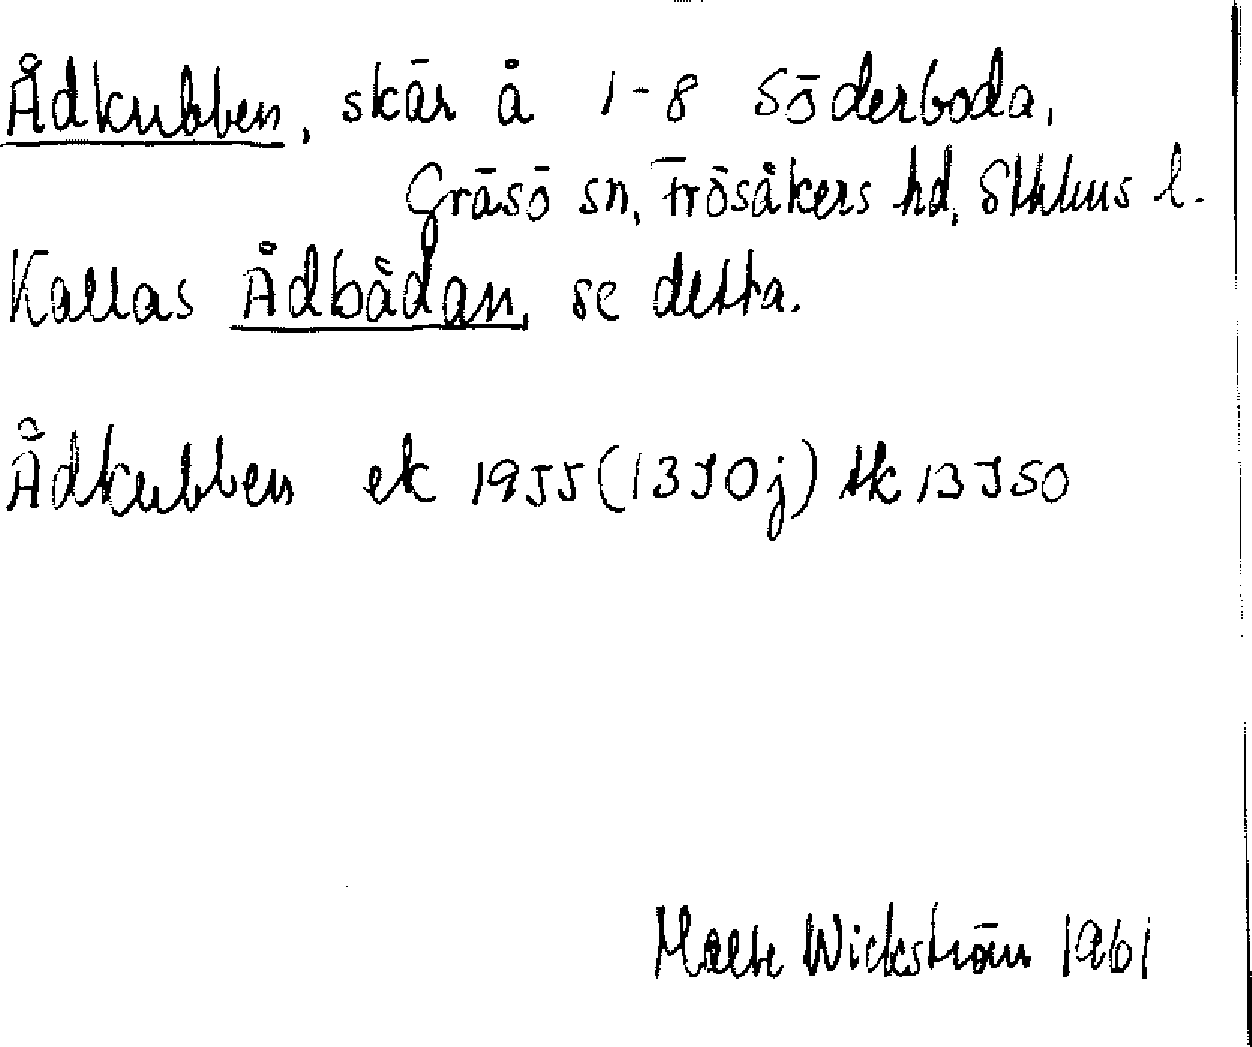 Ådkubben, skär å 1-8 Söderboda,
Gräsö sn, Frösåkers hd, Sthlms l.
Kallas Ådbådan, se detta.
Ådkubben ek 1955 (13J0j) tk 13J SO
Malte Wickström 1961